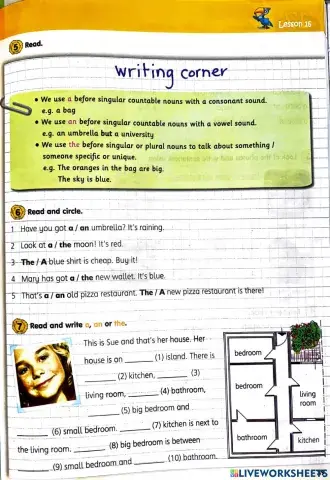 Lesson 16
5 Read.
Writing corner
• We use a before singular countable nouns with a consonant sound.
e.g. a bag
• We use an before singular countable nouns with a vowel sound.
e.g. an umbrella but a university
• We use the before singular or plural nouns to talk about something /
someone specific or unique.
e.g. The oranges in the bag are big.
The sky is blue.
6 Read and circle.
1 Have you got a / an umbrella? It's raining.
2 Look at a / the moon! It's red.
3 The / A blue shirt is cheap. Buy it!
4 Mary has got a / the new wallet. It's blue.
5 That's a / an old pizza restaurant. The / A new pizza restaurant is there!
7 Read and write a, an or the.
This is Sue and that's her house. Her
house is on ______ (1) island. There is
______ (2) kitchen, ______ (3)
living room, ______ (4) bathroom,
______ (5) big bedroom and
______ (6) small bedroom. ______ (7) kitchen is next to
the living room. ______ (8) big bedroom is between
______ (9) small bedroom and ______ (10) bathroom.
bedroom
bedroom
living
room
bathroom
kitchen
LIVEWORKSHEETS